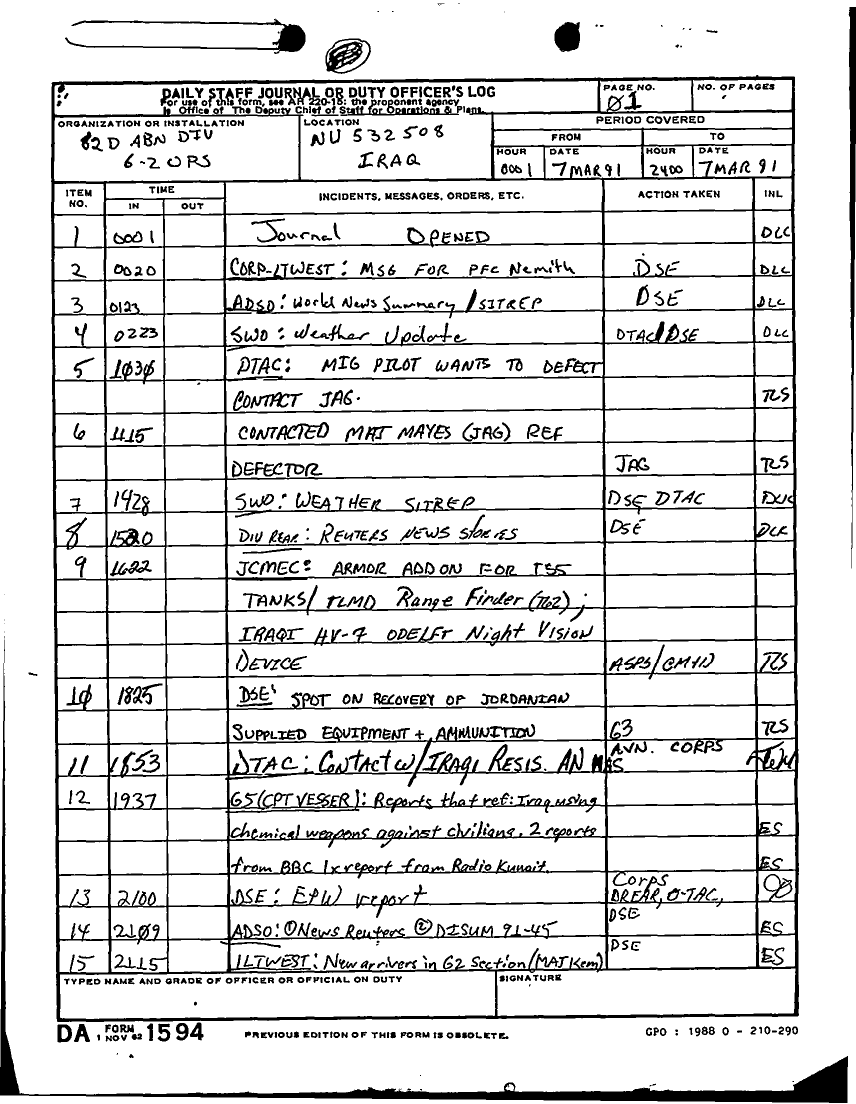 DAILY STAFF JOURNAL OR DUTY OFFICER'S LOG
For use of this form, see AR 220-15; the proponent agency
is Office of The Deputy Chief of Staff for Operations & Plans.
PAGE NO.
01
NO. OF PAGES
ORGANIZATION OR INSTALLATION
82D ABN DIV
G-2 OPS
LOCATION
NU 532508
IRAQ
PERIOD COVERED
FROM TO
HOUR DATE HOUR DATE
0001 7MAR91 2400 7MAR91
ITEM NO. TIME INCIDENTS, MESSAGES, ORDERS, ETC. ACTION TAKEN INL
IN OUT
1 0001 Journal OPENED DLC
2 0020 CORP-LTWEST: MSG FOR PFC Nemith DSE DLC
3 0123 ADSO: World News Summary/SITREP DSE DLC
4 0223 SWO: Weather Update DTAC/DSE DLC
5 1030 DTAC: MIG PILOT WANTS TO DEFECT
CONTACT JAG. TLS
6 1115 CONTACTED MAJ MAYES (JAG) REF
DEFECTOR JAG TLS
7 1428 SWO: WEATHER SITREP DSE DTAC
8 1520 DIV REAR: REUTERS NEWS STORIES DSE DLC
9 1622 JCMEC: ARMOR ADD ON FOR T55
TANKS/TLMD Range Finder (T62);
IRAQI HV-7 ODELFT Night Vision
DEVICE TLS
10 1825 DSE: SPOT ON RECOVERY OF JORDANIAN
SUPPLIED EQUIPMENT + AMMUNITION G3 TLS
11 1853 DTAC: Contact w/IRAQI RESIS. AN NAS AVN. CORPS
12 1937 G5(CPT VESSER): Reports that ref: Iraq using
chemical weapons against civilians. 2 reports ES
from BBC 1x report from Radio Kuwait. ES
13 2100 DSE: EPW report Corps
DREAR, D-TAC,
DSE
14 2109 ADSO: ①News Reuters ②DISUM 91-45 ES
15 2115 1LTWEST: New arrivers in G2 Section (MAJ Kem) DSE ES
TYPED NAME AND GRADE OF OFFICER OR OFFICIAL ON DUTY
SIGNATURE
DA FORM 1 NOV 62 1594
PREVIOUS EDITION OF THIS FORM IS OBSOLETE.
GPO : 1988 O - 210-290